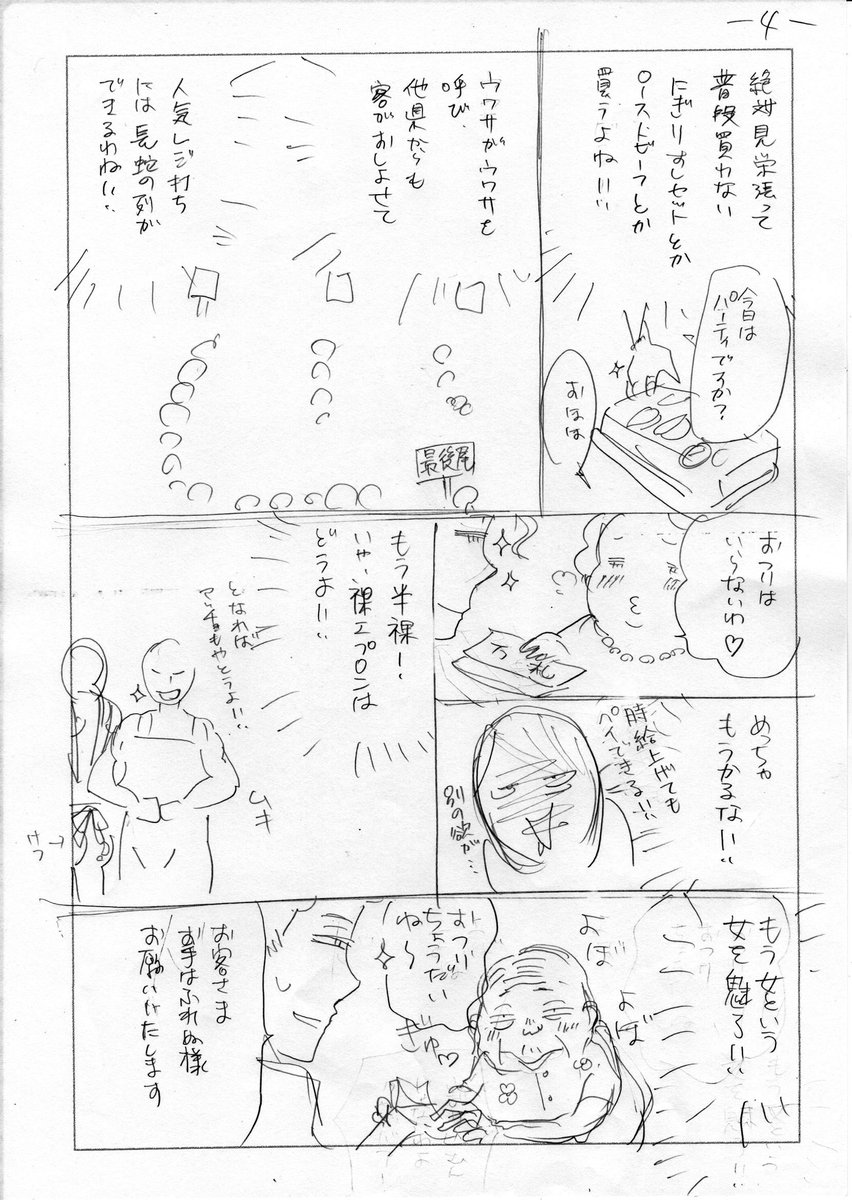 -4-
絶対見栄張って
普段買わない
にぎりずしセットとか
ローストビーフとか
買うよね!!!
今日は
パーティですか?
おほほ
ウワサがウワサを
呼び、
他県からも
客がおしよせて
人気レジ打ち
には長蛇の列が
できるわね!!
最後尾
おつりは
いらないわ♡
万
札
めっちゃ
もうかるな!!
時給上げても
ペイできる!!
別の欲が…
もう半裸!
いや、裸エプロンは
どうよ!!
となれば
マッチョもやとうよ!!
ムキ
もう女という
女を魅ろ!!!
よぼ
よぼ
おつり
ちょうだい
ね〜
ぎゅ♡
お客さま
お手はふれぬ様
お願いいたします